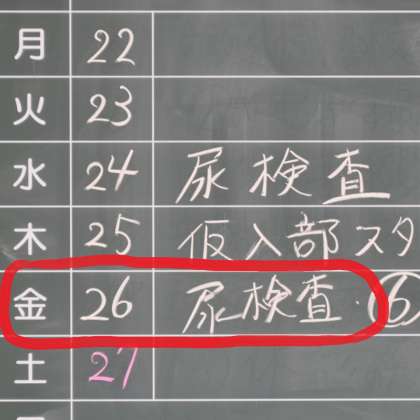 月 22
火 23
水 24 尿検査
木 25 仮入部スタ
金 26 尿検査・⑥
土 27